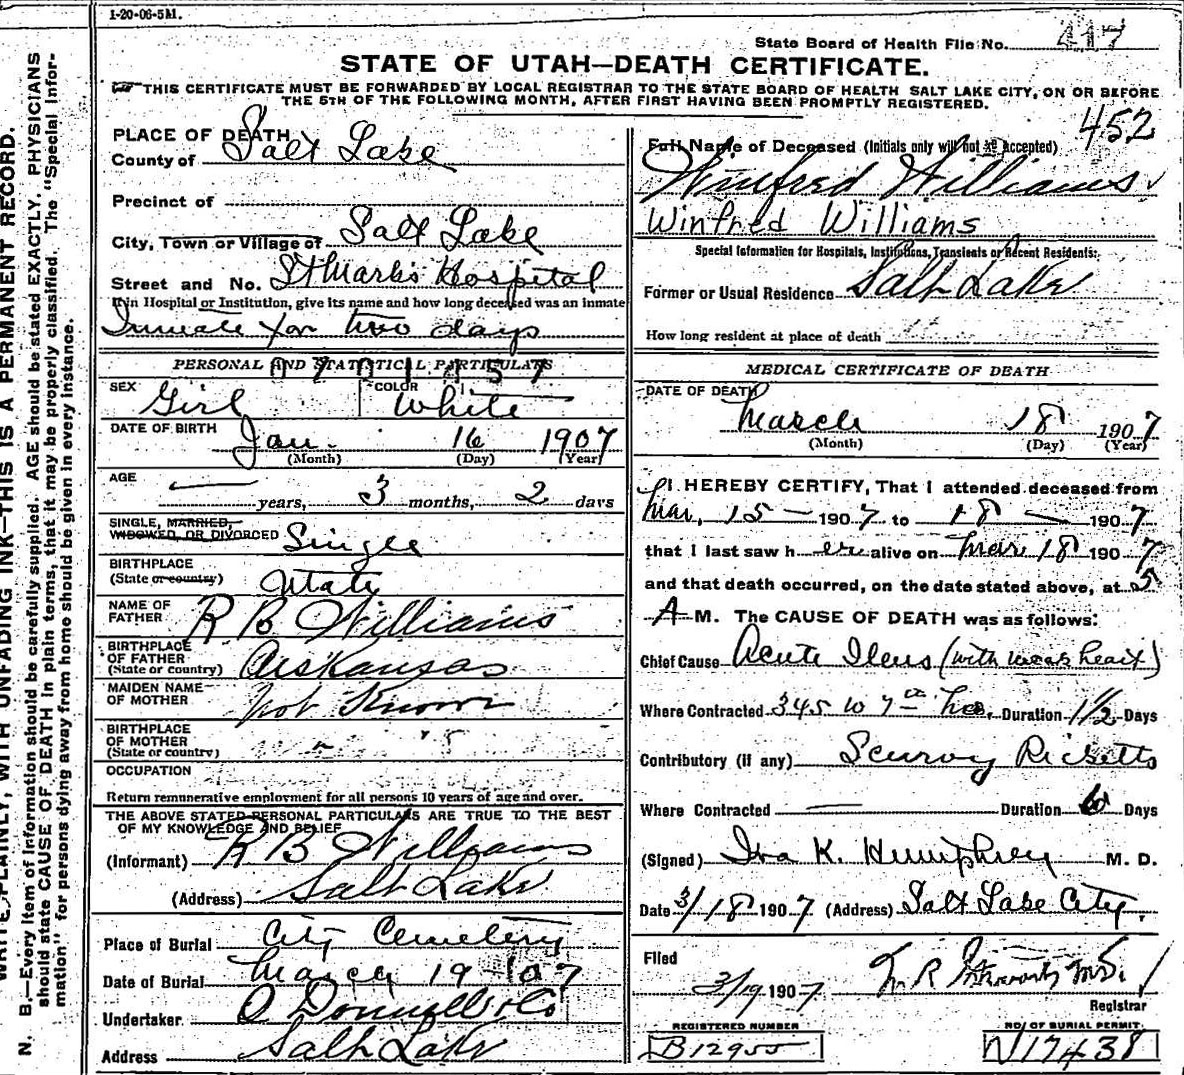 1-20-06-5M.
State Board of Health File No. 417
STATE OF UTAH—DEATH CERTIFICATE.
THIS CERTIFICATE MUST BE FORWARDED BY LOCAL REGISTRAR TO THE STATE BOARD OF HEALTH SALT LAKE CITY, ON OR BEFORE
THE 5TH OF THE FOLLOWING MONTH, AFTER FIRST HAVING BEEN PROMPTLY REGISTERED.
452
PLACE OF DEATH
County of Salt Lake
Precinct of
City, Town or Village of Salt Lake
Street and No. St Marks Hospital
If in Hospital or Institution, give its name and how long deceased was an inmate
Inmate for two days
PERSONAL AND STATISTICAL PARTICULARS
SEX Girl COLOR White
DATE OF BIRTH Jan. 16 1907
(Month) (Day) (Year)
AGE — years, 3 months, 2 days
SINGLE, MARRIED,
WIDOWED, OR DIVORCED Single
BIRTHPLACE
(State or country) Utah
NAME OF
FATHER R B Williams
BIRTHPLACE
OF FATHER
(State or country) Arkansas
MAIDEN NAME
OF MOTHER Not Known
BIRTHPLACE
OF MOTHER
(State or country)
OCCUPATION
Return remunerative employment for all persons 10 years of age and over.
THE ABOVE STATED PERSONAL PARTICULARS ARE TRUE TO THE BEST
OF MY KNOWLEDGE AND BELIEF
(Informant) R B Williams
(Address) Salt Lake
Place of Burial City Cemetery
Date of Burial March 19 - 07
Undertaker O Donnell & Co
Address Salt Lake
Full Name of Deceased (Initials only will not be accepted)
Winifred Williams
Winfred Williams
Special Information for Hospitals, Institutions, Transients or Recent Residents:
Former or Usual Residence Salt Lake
How long resident at place of death
MEDICAL CERTIFICATE OF DEATH
DATE OF DEATH
March 18 1907
(Month) (Day) (Year)
I HEREBY CERTIFY, That I attended deceased from
Mar, 15 — 1907 to 18 — 1907
that I last saw h er alive on Mar 18 1907
and that death occurred, on the date stated above, at 5
A M. The CAUSE OF DEATH was as follows:
Chief Cause Acute Ileus (with weak heart)
Where Contracted 345 W 7th Duration 1 1/2 Days
Contributory (if any) Scurvy Ricketts
Where Contracted — Duration Days
(Signed) Ira K. Humphrey M. D.
Date 3/18 1907 (Address) Salt Lake City.
Filed
3/19 1907
Registrar
REGISTERED NUMBER
B12955
NO. OF BURIAL PERMIT
N17438
N. B.—Every item of information should be carefully supplied. AGE should be stated EXACTLY. PHYSICIANS
should state CAUSE OF DEATH in plain terms, that it may be properly classified. The "Special Infor-
mation" for persons dying away from home should be given in every instance.
WRITE PLAINLY, WITH UNFADING INK—THIS IS A PERMANENT RECORD.